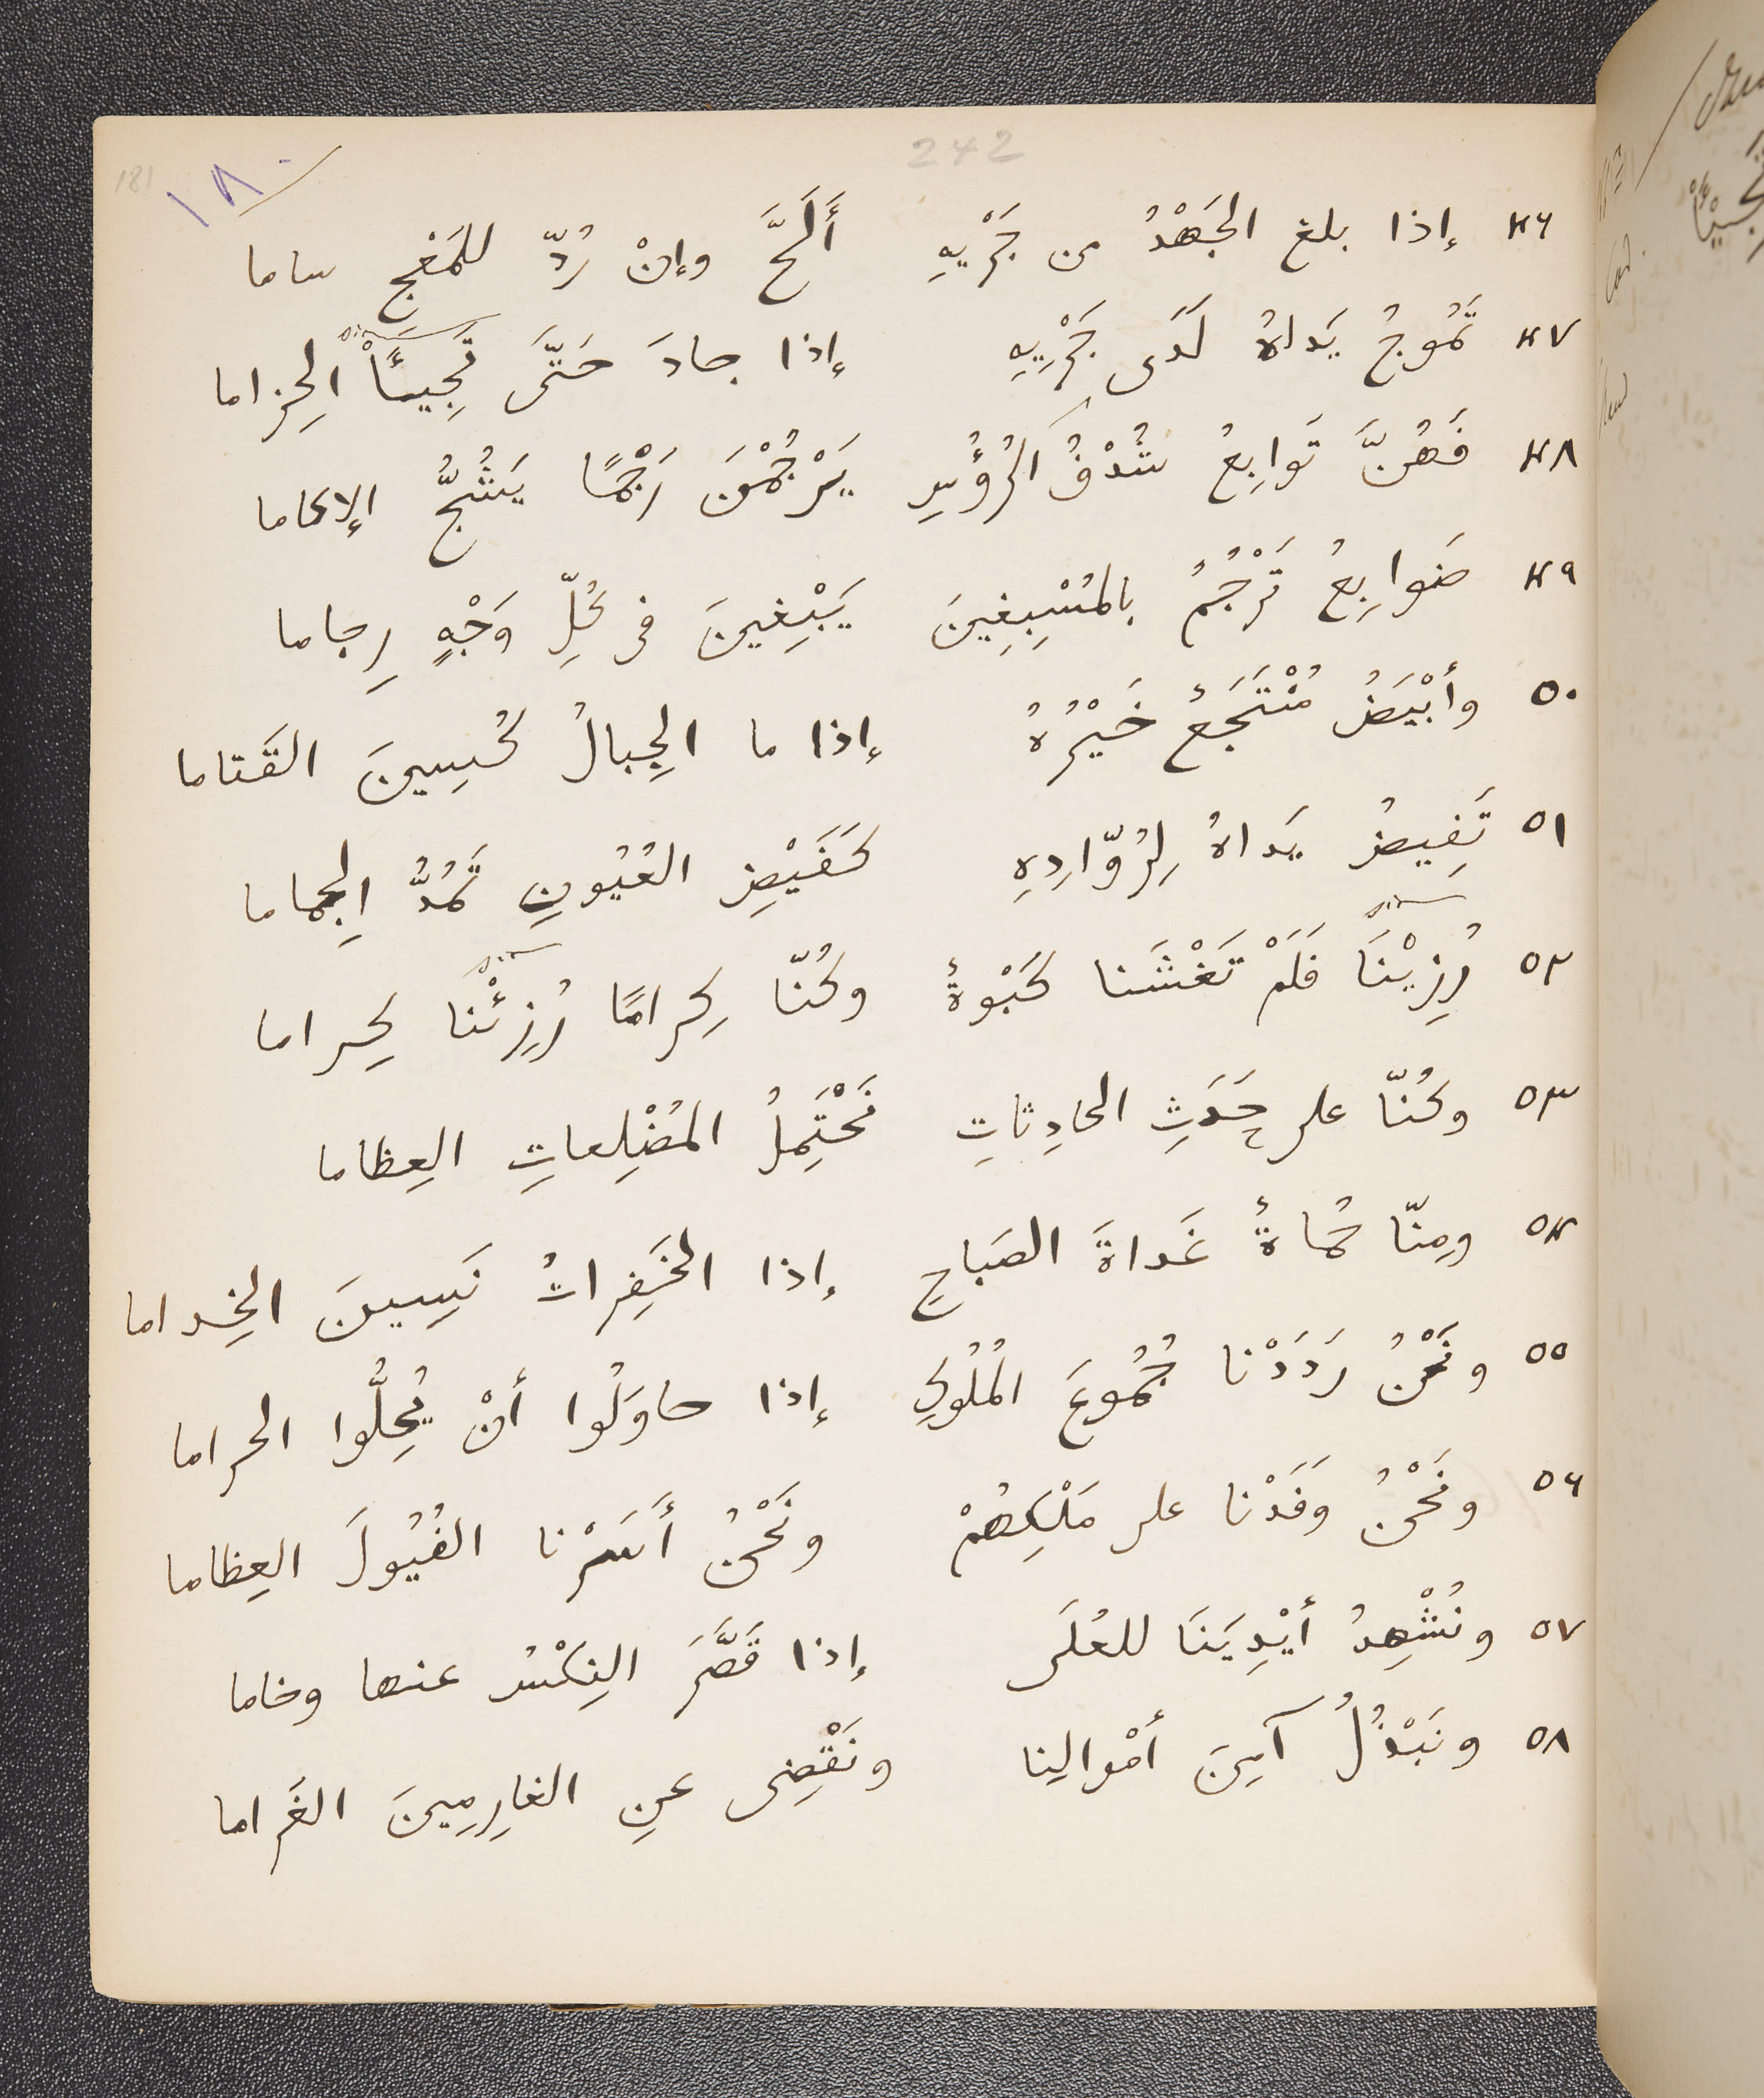 242
181
١٨٠
٤٦ إذا بلغ الجَهْدُ من جَرْيِهِ أَلَحَّ وإنْ رُدّ للمَغْجِ ساما
٤٧ تَمُوجُ يَداهُ لَدَى جَرْيِهِ إذا جادَ حَتَّى تَجِيئًا الحِزاما
sic
٤٨ فَهُنَّ تَوابِعُ شُدْفُ الرُؤُسِ يَرْجُمْنَ رَجْمًا يَشُجُّ الإكاما
٤٩ ضَوابِعُ تَرْجُمُ بالمُسْبِغِينَ يَبْغِينَ فى كُلِّ وَجْهٍ رِجاما
٥٠ وأبْيَضُ مُنْتَجَعٌ خَيْرُهُ إذا ما الجِبالُ كُسِينَ القَتاما
٥١ تَفِيضُ يَداهُ لِرُوّادِهِ كَفَيْضِ العُيُونِ تَمُدُّ الجِماما
sic
٥٢ رُزِيْنَا فَلَمْ تَغْشَنا كَبْوةٌ وكُنّا كِرامًا رُزِئْنا كِراما
sic
٥٣ وكُنّا على حَدَثِ الحادِثاتِ نَحْتَمِلُ المُضْلِعاتِ العِظاما
٥٤ ومِنّا حُماةٌ غَداةَ الصَباحِ إذا الخَفِراتُ نَسِينَ الخِداما
٥٥ ونَحْنُ رَدَدْنا جُمُوعَ المُلُوكِ إذا حاوَلُوا أنْ يُحِلُّوا الحراما
٥٦ ونَحْنُ وَفَدْنا على مَلْكِهُمْ ونَحْنُ أَسَرْنا الفُيُولَ العِظاما
٥٧ ونُشْهِدُ أيْدِيَنَا للعُلَى إذا قَصَّرَ النِكْسُ عنها وخاما
٥٨ ونَبْذُلُ آمِنَ أمْوالِنا ونَقْضِى عنِ الغارِمِينَ الغَراما